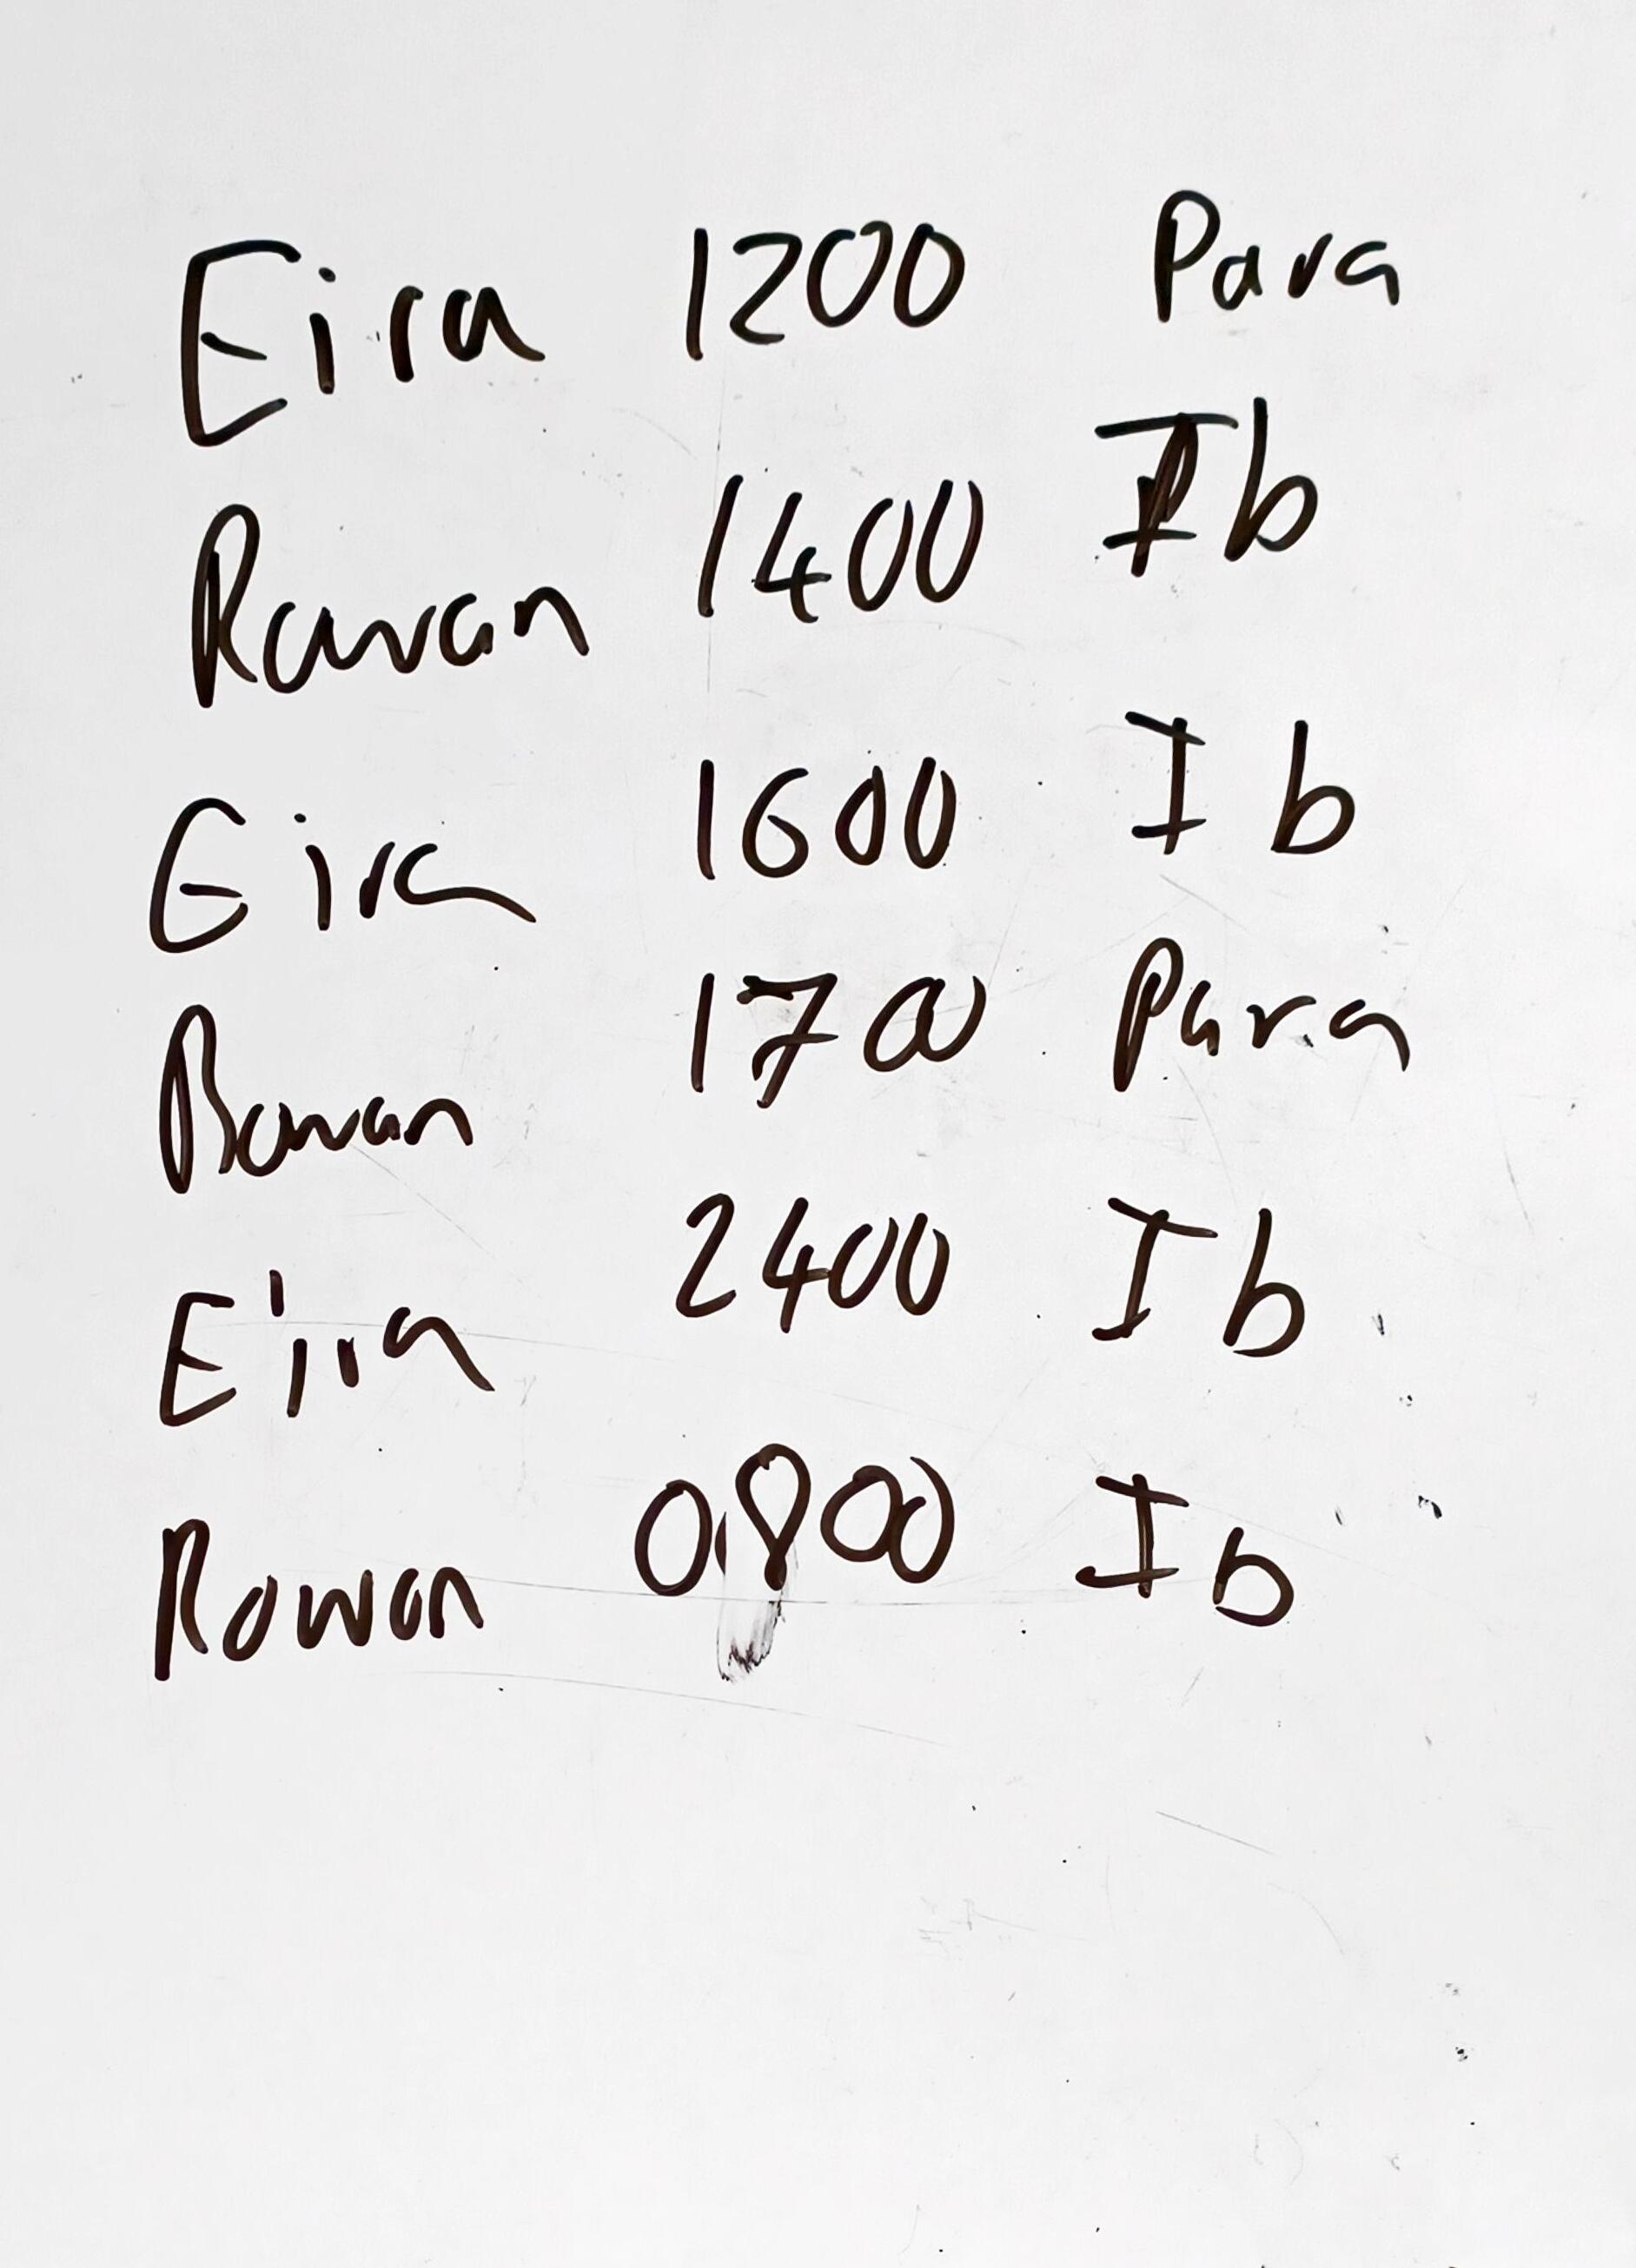 Eira 1200 Para
Rowan 1400 Ib
Eira 1600 Ib
Rowan 1700 Para
Eira 2400 Ib
Rowan 0800 Ib